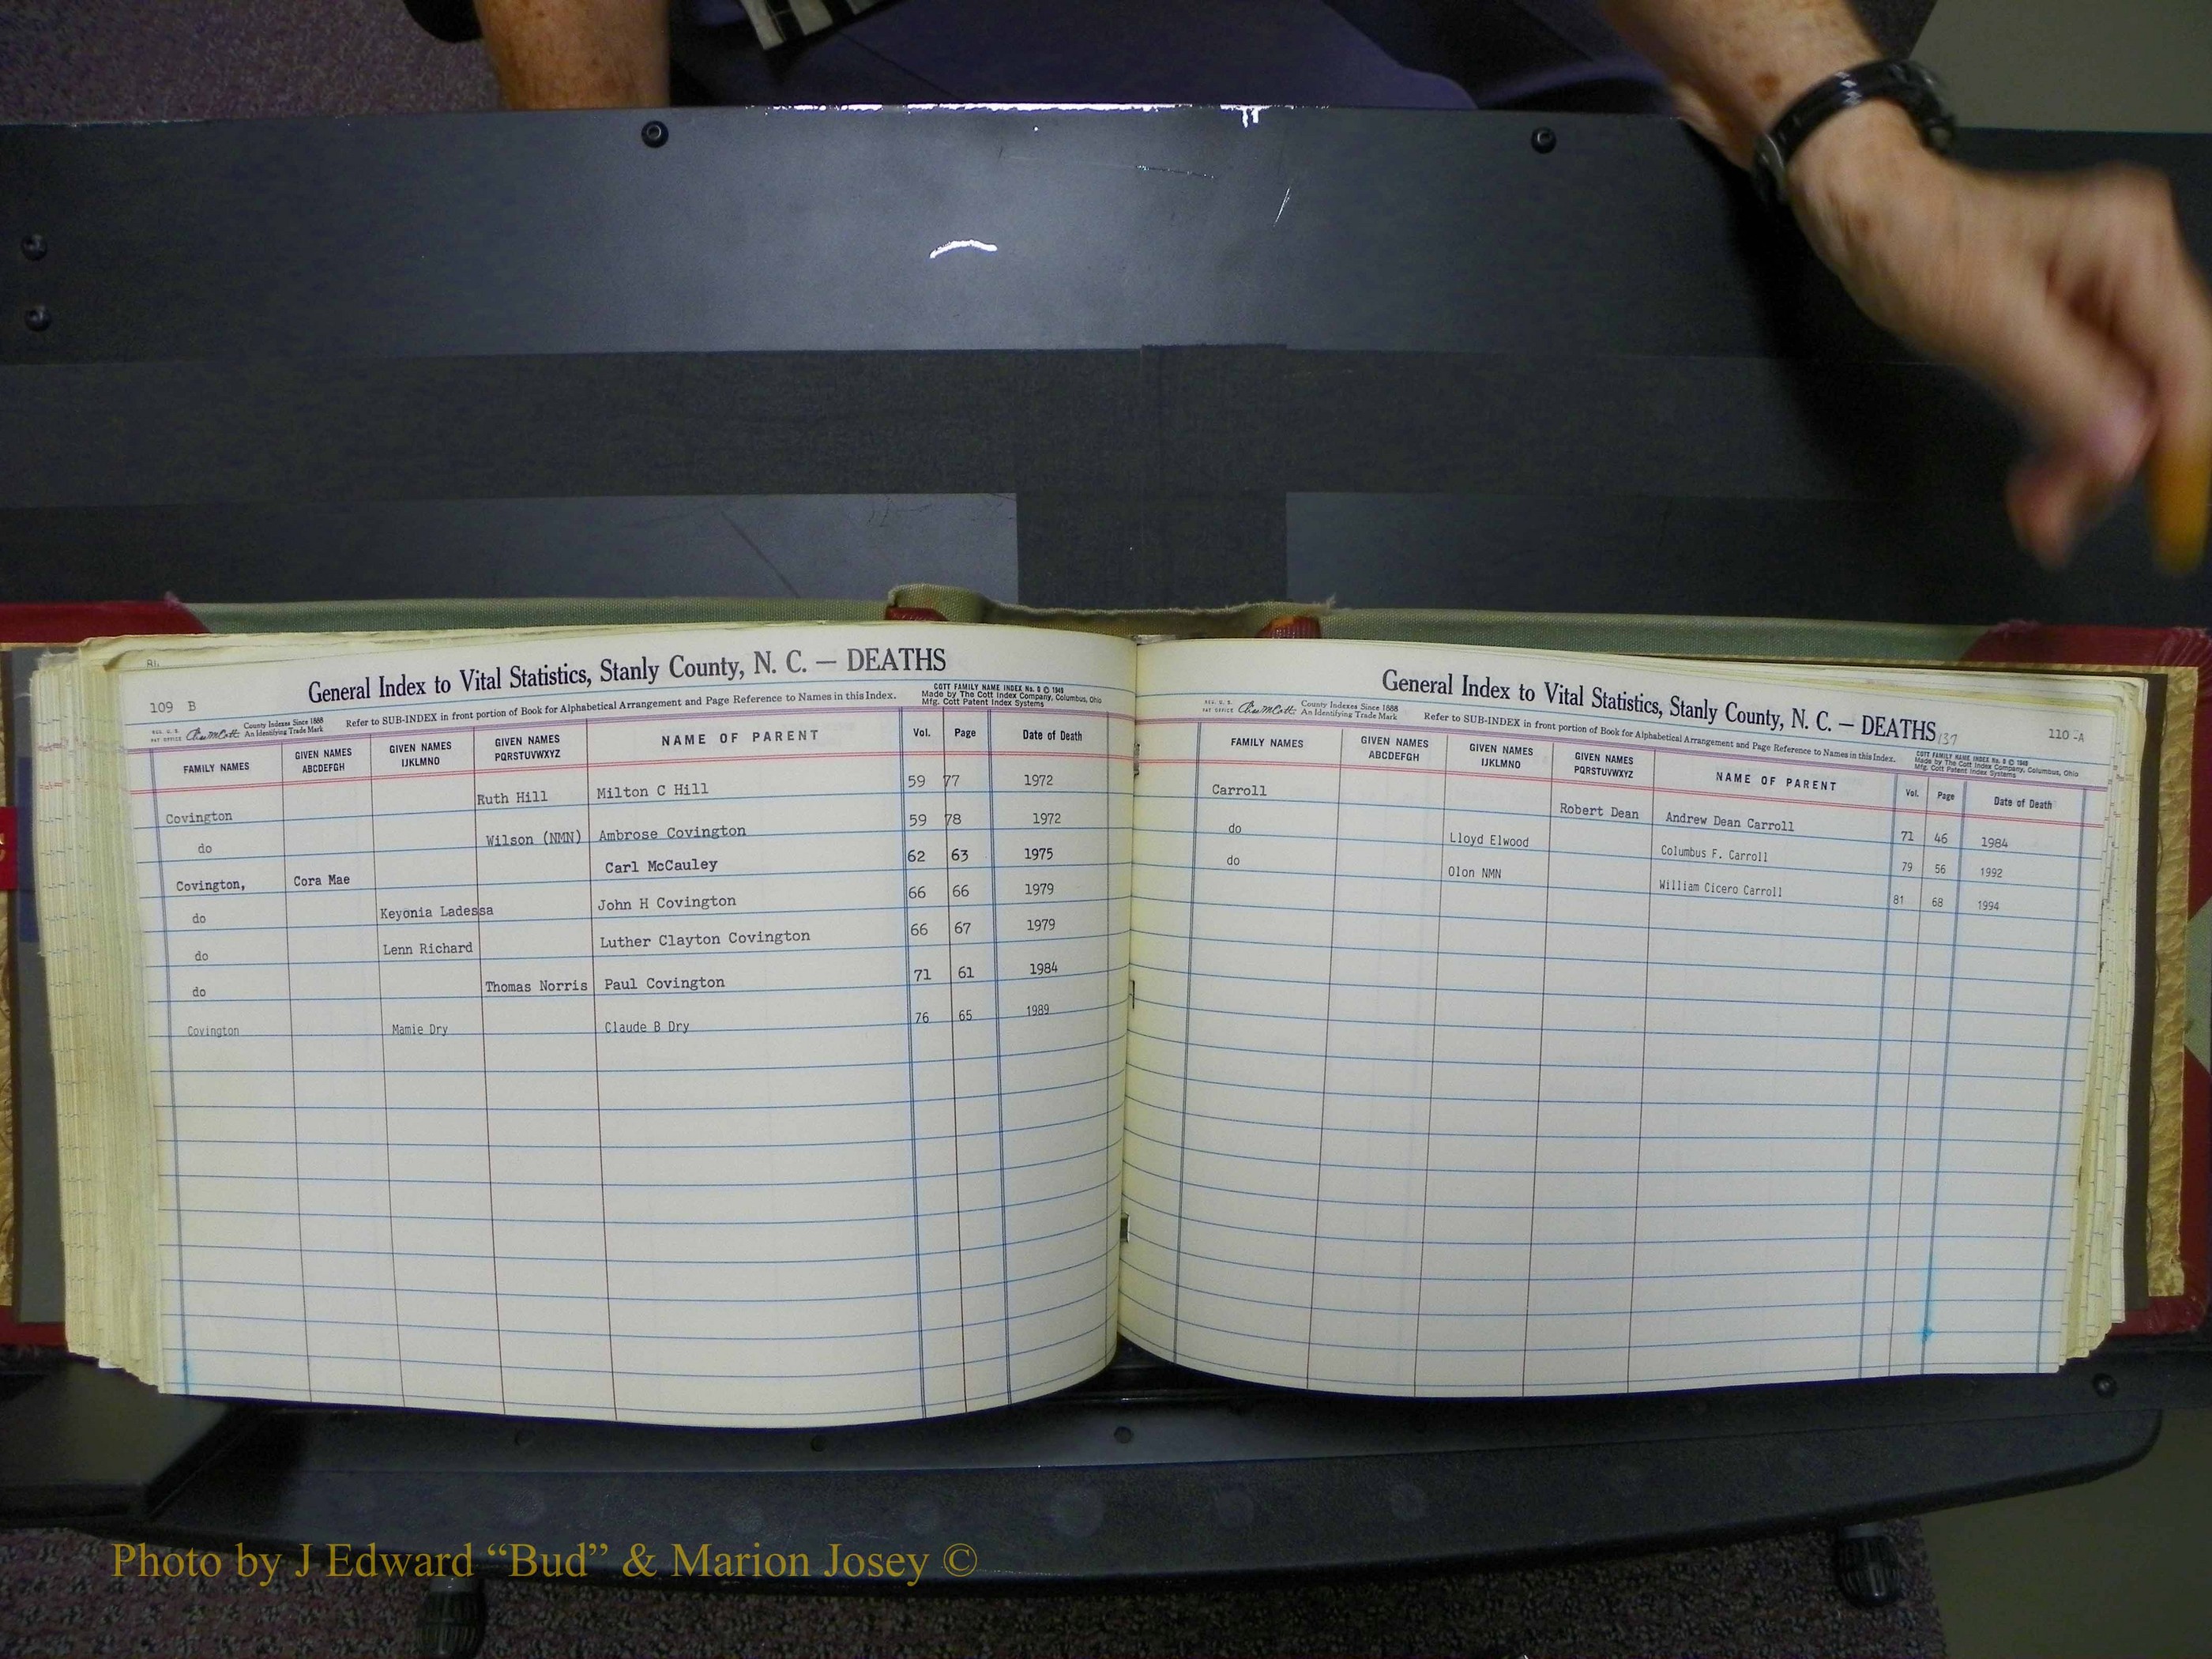 109 B
General Index to Vital Statistics, Stanly County, N. C. — DEATHS
REG. U. S. PAT OFFICE County Indexes Since 1888 An Identifying Trade Mark
Refer to SUB-INDEX in front portion of Book for Alphabetical Arrangement and Page Reference to Names in this Index.
COTT FAMILY NAME INDEX No. 8 © 1949
Made by The Cott Index Company, Columbus, Ohio
Mfg. Cott Patent Index Systems
FAMILY NAMES GIVEN NAMES ABCDEFGH GIVEN NAMES IJKLMNO GIVEN NAMES PQRSTUVWXYZ NAME OF PARENT Vol. Page Date of Death
Covington Ruth Hill Milton C Hill 59 77 1972
do Wilson (NMN) Ambrose Covington 59 78 1972
Covington, Cora Mae Carl McCauley 62 63 1975
do Keyonia Ladessa John H Covington 66 66 1979
do Lenn Richard Luther Clayton Covington 66 67 1979
do Thomas Norris Paul Covington 71 61 1984
Covington Mamie Dry Claude B Dry 76 65 1989
General Index to Vital Statistics, Stanly County, N. C. — DEATHS 137
110 -A
REG. U. S. PAT OFFICE County Indexes Since 1888 An Identifying Trade Mark
Refer to SUB-INDEX in front portion of Book for Alphabetical Arrangement and Page Reference to Names in this Index.
COTT FAMILY NAME INDEX No. 8 © 1949
Made by The Cott Index Company, Columbus, Ohio
Mfg. Cott Patent Index Systems
FAMILY NAMES GIVEN NAMES ABCDEFGH GIVEN NAMES IJKLMNO GIVEN NAMES PQRSTUVWXYZ NAME OF PARENT Vol. Page Date of Death
Carroll Robert Dean Andrew Dean Carroll 71 46 1984
do Lloyd Elwood Columbus F. Carroll 79 56 1992
do Olon NMN William Cicero Carroll 81 68 1994
Photo by J Edward “Bud” & Marion Josey ©